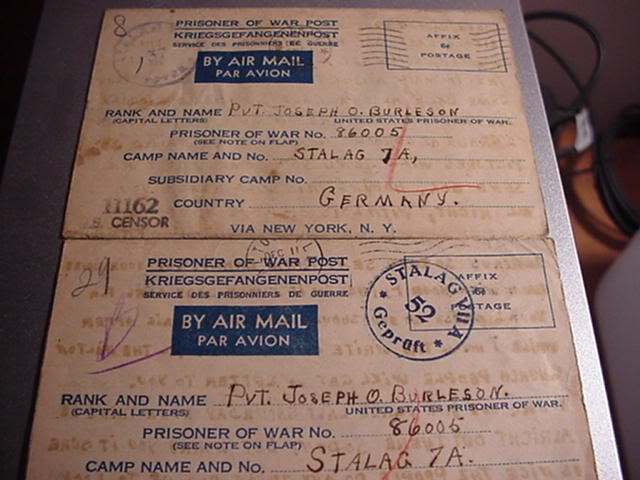 8
PRISONER OF WAR POST
KRIEGSGEFANGENENPOST
SERVICE DES PRISONNIERS DE GUERRE
AFFIX
6¢
POSTAGE
1
BY AIR MAIL
PAR AVION
RANK AND NAME PVT. JOSEPH O. BURLESON
(CAPITAL LETTERS) UNITED STATES PRISONER OF WAR.
PRISONER OF WAR No. 86005
(SEE NOTE ON FLAP)
CAMP NAME AND No. STALAG 7A,
SUBSIDIARY CAMP No.
COUNTRY GERMANY.
11162
U.S. CENSOR
VIA NEW YORK, N. Y.
DEC 11
29
PRISONER OF WAR POST
KRIEGSGEFANGENENPOST
SERVICE DES PRISONNIERS DE GUERRE
STALAG VII A
52
Geprüft
AFFIX
6¢
POSTAGE
BY AIR MAIL
PAR AVION
RANK AND NAME PVT. JOSEPH O. BURLESON.
(CAPITAL LETTERS) UNITED STATES PRISONER OF WAR.
PRISONER OF WAR No. 86005
(SEE NOTE ON FLAP)
CAMP NAME AND No. STALAG 7A.